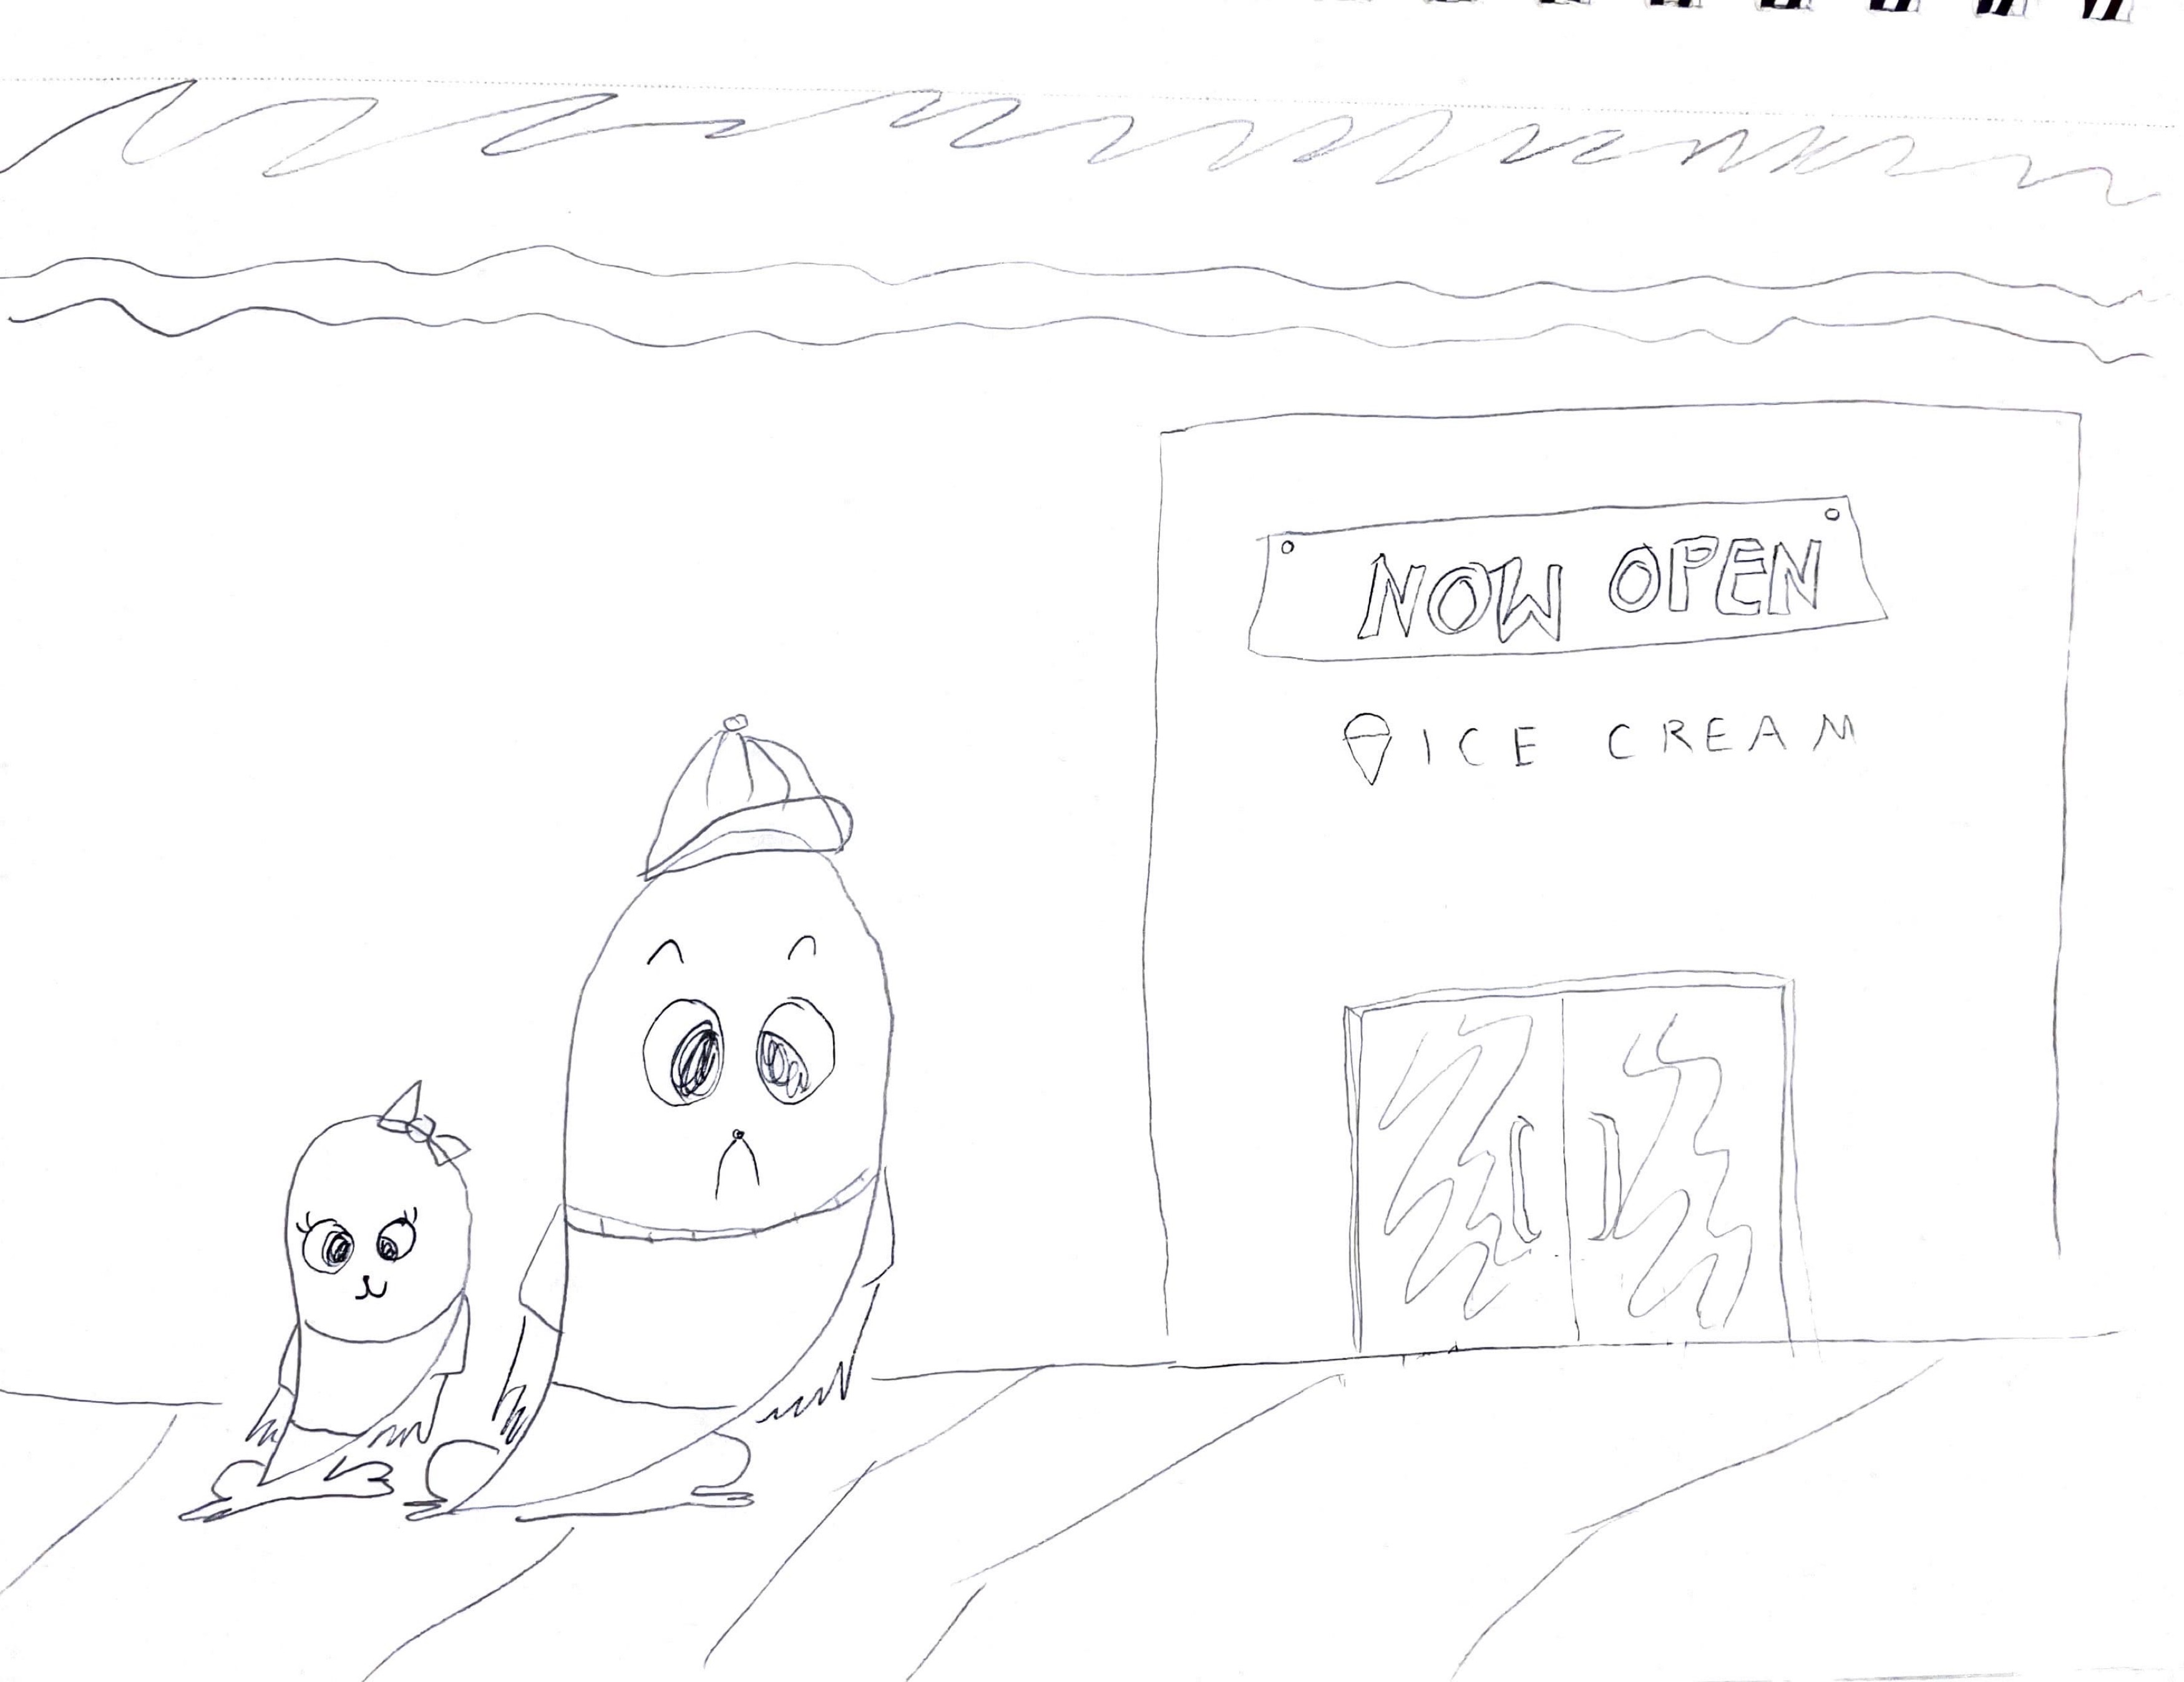 NOW OPEN
ICE CREAM